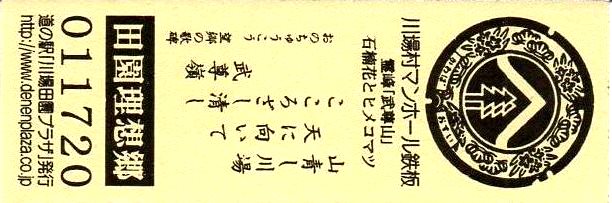 川場村マンホール鉄板
「武尊山」
石楠花とヒメコマツ
山青し川場
天に向いて
こころざし清し
武尊嶺
おのちゅうこう
の歌碑
田園理想郷
011720
道の駅「川場田園プラザ」発行
http://www.denenplaza.co.jp